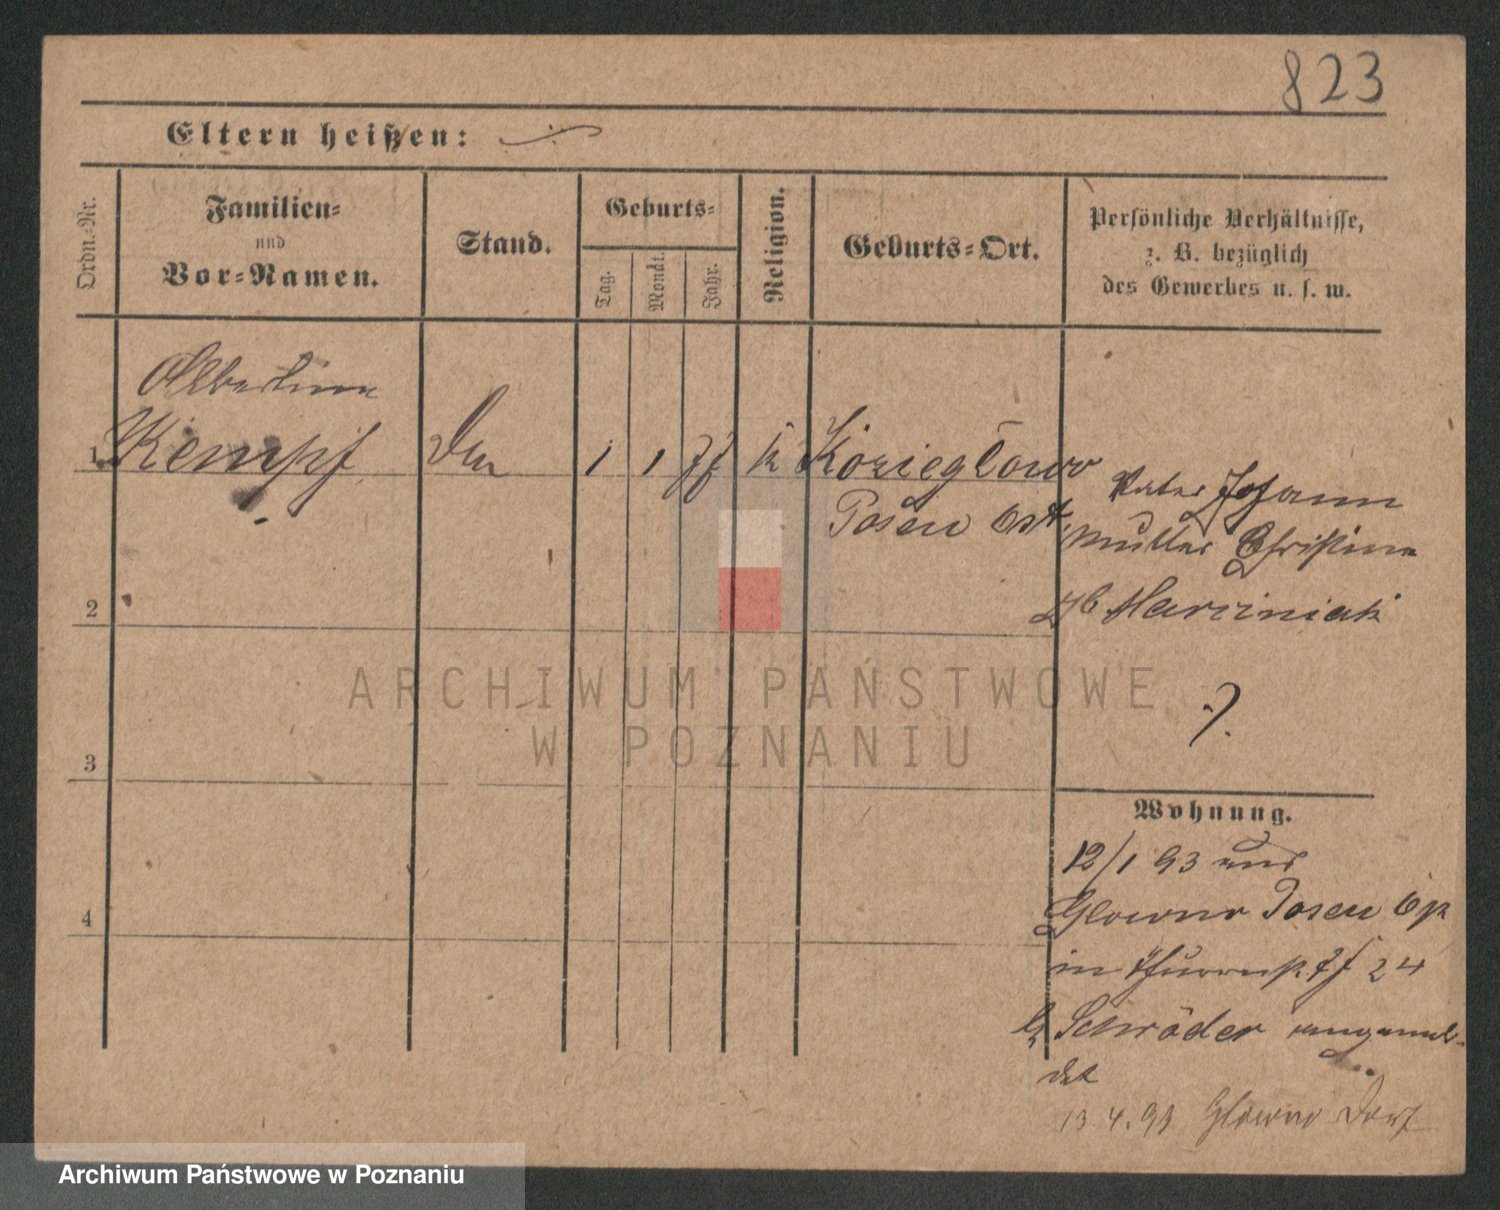 823
Eltern heißen:
Ordn.=Nr.
Familien=
und
Vor=Namen.
Stand.
Geburts=
Tag.
Monat.
Jahr.
Religion.
Geburts=Ort.
Persönliche Verhältnisse,
z. B. bezüglich
des Gewerbes u. s. w.
Albertine
1 Kempf
1 1 77 k Koziegłowo
Posen Ost
Vater Johann
Mutter Christine
gb Marciniak
2
?
3
Wohnung.
12/1 93 aus
Glowno Posen
in 24
b Schröder angemel-
det
4
13.4.93 Glowno Dorf
ARCHIWUM PAŃSTWOWE
W POZNANIU
Archiwum Państwowe w Poznaniu